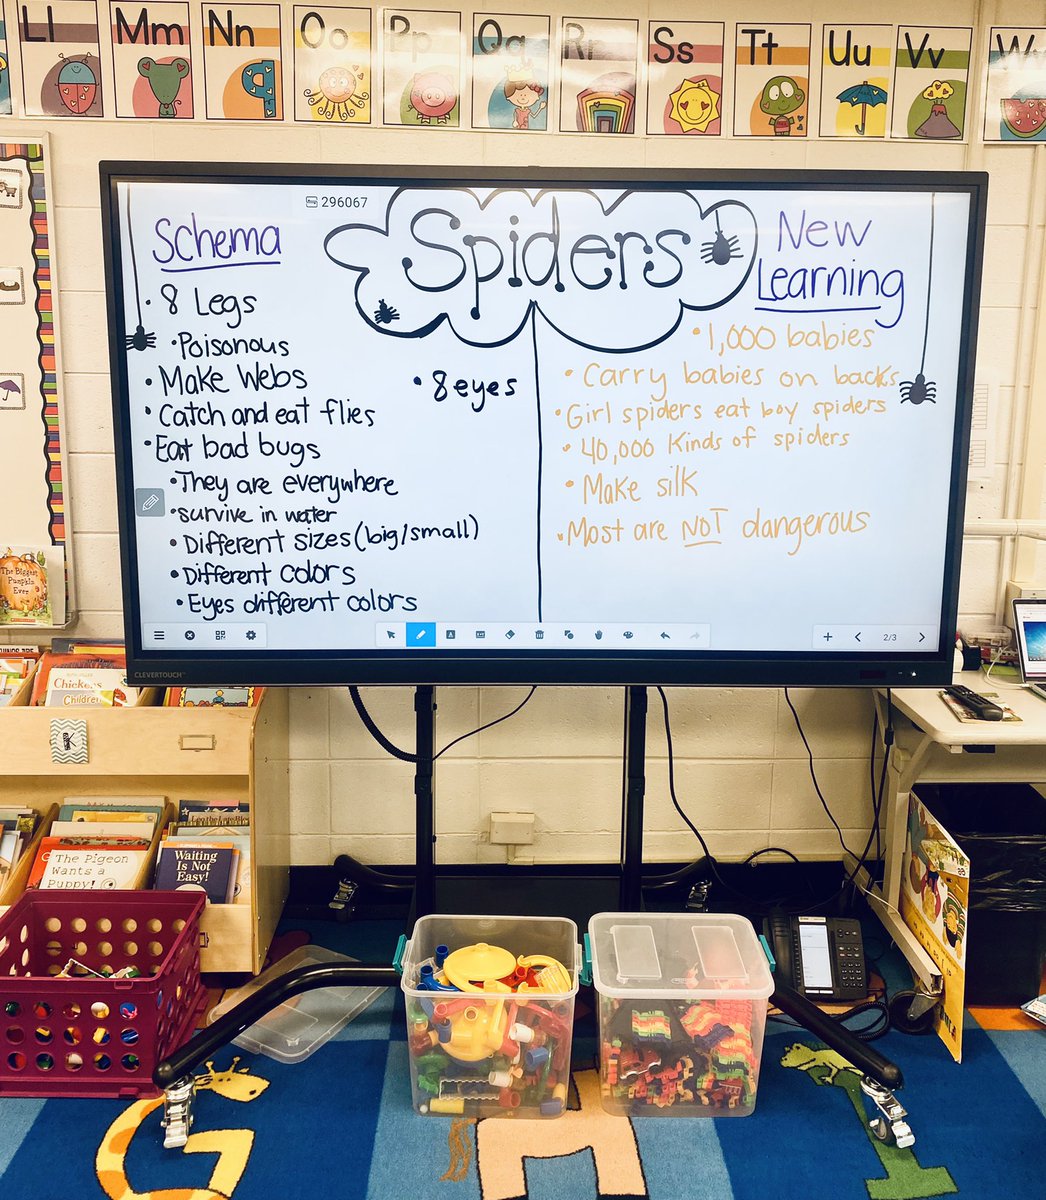 Ll
Mm
Nn
Oo
Pp
Qq
Rr
Ss
Tt
Uu
Vv
Ww
296067
Spiders
Schema
• 8 Legs
• Poisonous
• Make Webs
• Catch and eat flies
• Eat bad bugs
• They are everywhere
• survive in water
• Different sizes (big/small)
• Different colors
• Eyes different colors
• 8 eyes
New
Learning
• 1,000 babies
• Carry babies on backs
• Girl spiders eat boy spiders
• 40,000 Kinds of spiders
• Make silk
• Most are NOT dangerous
2/3
CLEVERTOUCH
The Biggest
Pumpkin
Ever
Chickens
Children
K
The Pigeon
Wants a
Puppy!
Waiting
Is Not
Easy!